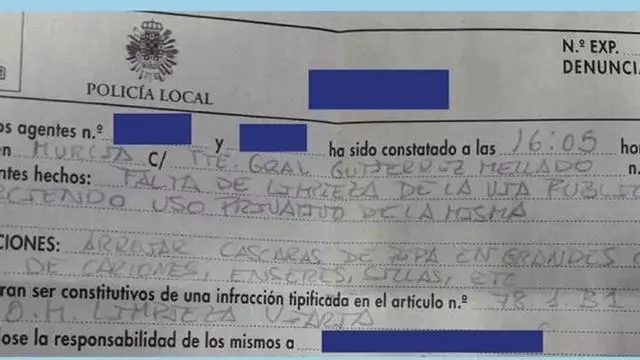 POLICÍA LOCAL
N.º EXP.
DENUNCI
os agentes n.º y ha sido constatado a las 16:05 ho
en MURCIA C/ TTE. GRAL GUTIERREZ MELLADO n.
ntes hechos: FALTA DE LIMPIEZA DE LA VIA PUBLI
CIENDO USO PRIVATIVO DE LA MISMA
CIONES: ARROJAR CASCARAS DE PIPA EN GRANDES C
DE CARTONES, ENSERES, SILLAS, ETC
ran ser constitutivos de una infracción tipificada en el artículo n.º 78.1.B1
O.M. LIMPIEZA VIARIA
dose la responsabilidad de los mismos a